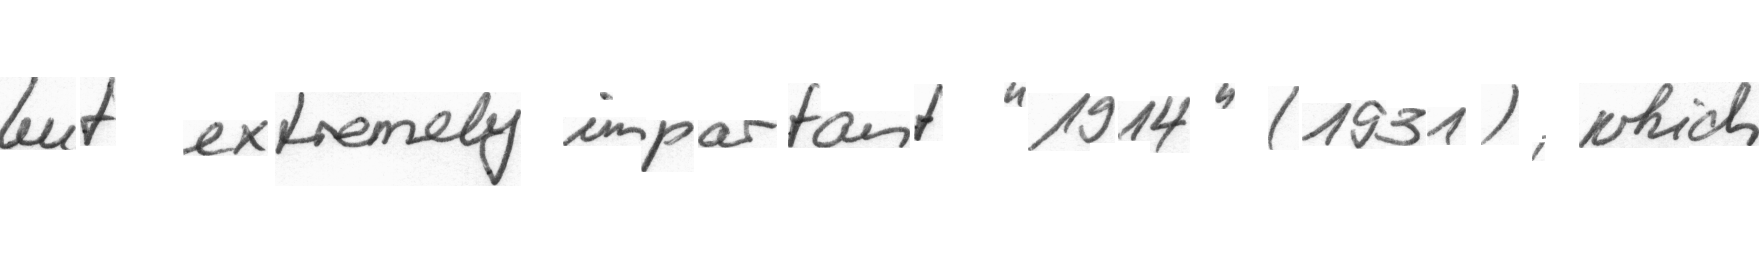 but extremely important "1914" (1931), which